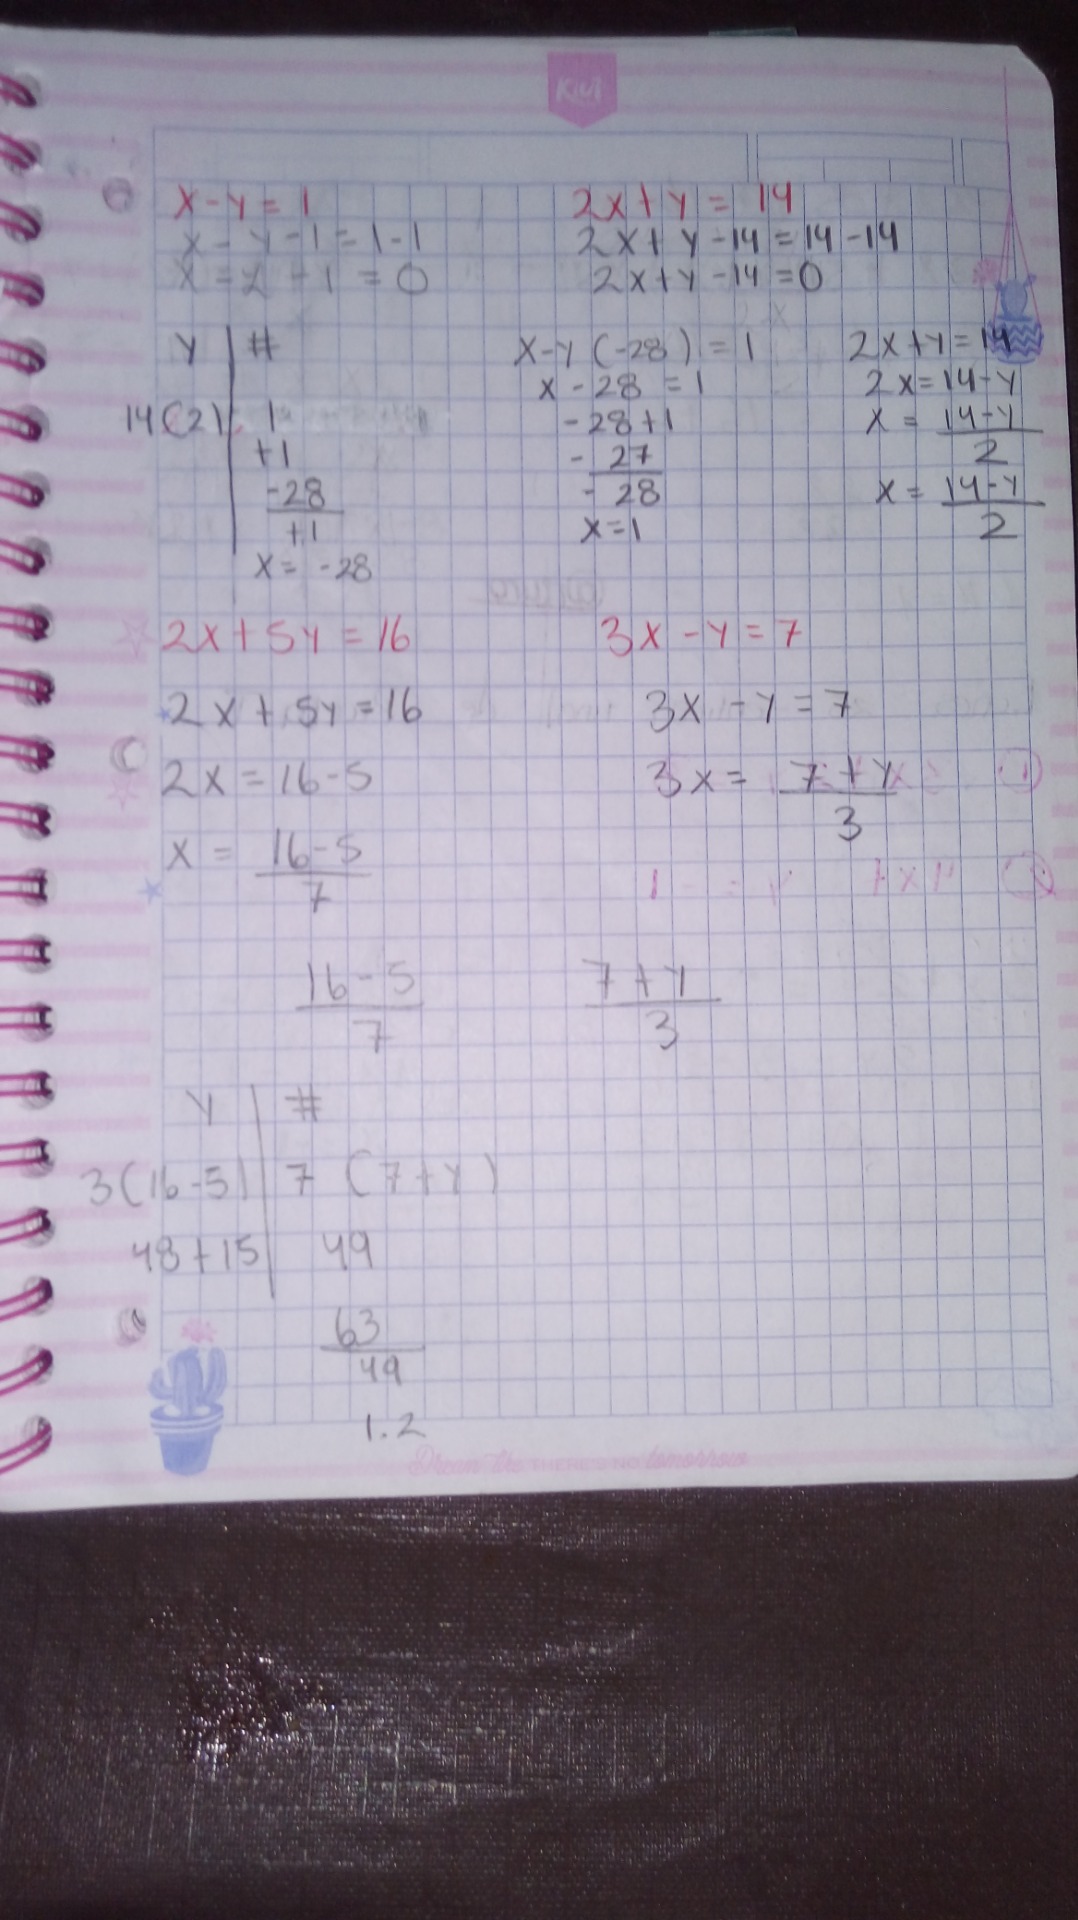 Kiut
x-y=1
x-y-1=1-1
x=y-1=0
2x+y=14
2x+y-14=14-14
2x+y-14=0
y | #
14(2) 1
+1
-28
+1
x= -28
x-y(-28)=1
x-28=1
-28+1
- 27
- 28
x=1
2x+y=14
2x=14-y
x= 14-y
2
x= 14-y
2
2x+5y=16
2x+5y=16
2x=16-5
x= 16-5
7
3x-y=7
3x-y=7
3x= 7+y
3
16-5
7
7+y
3
y | #
3(16-5) | 7 (7+y)
48+15 | 49
63
49
1.2